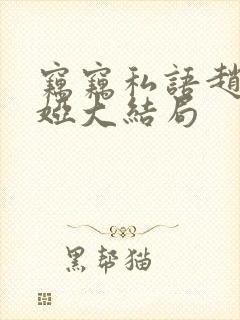 竊竊私語趙
婭大結局
黑幫猫